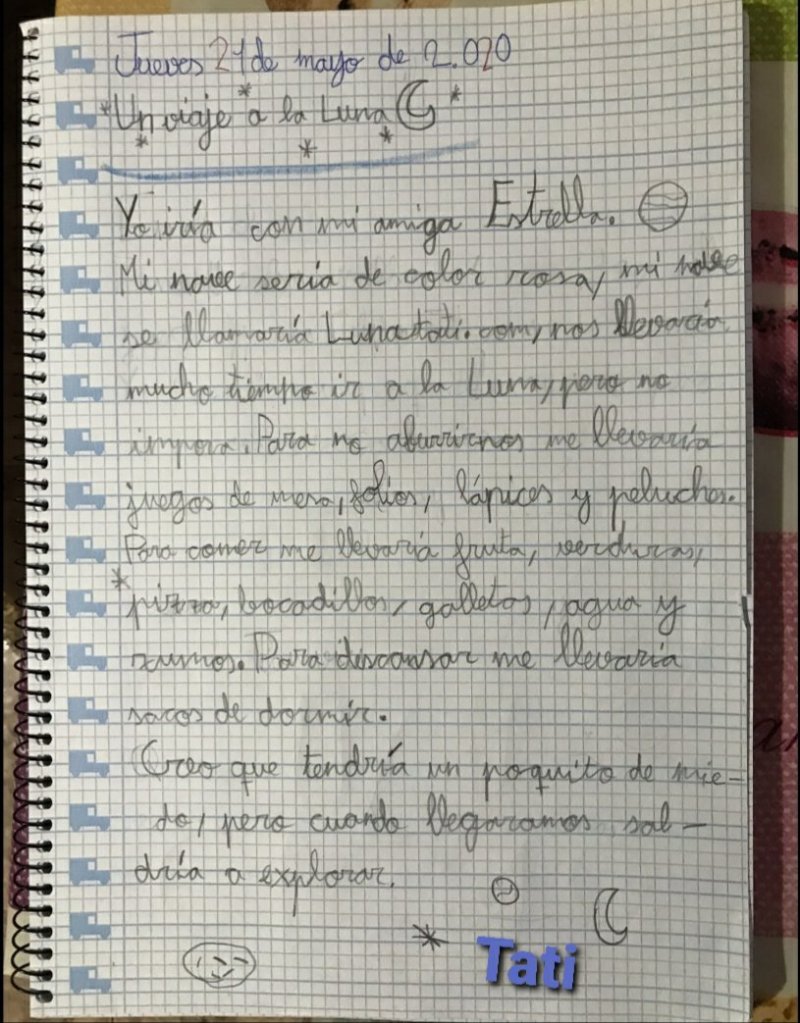 Jueves 21 de mayo de 2.020
Un viaje a la Luna
Yo iría con mi amiga Estrella.
Mi nave sería de color rosa, mi nave
se llamaría Lunatati.com, nos llevaría
mucho tiempo ir a la Luna, pero no
impora. Para no aburrirnos me llevaría
juegos de mesa, folios, lápices y peluches.
Para comer me llevaría fruta, verduras,
pizza, bocadillos, galletas, agua y
zumos. Para discansar me llevaría
sacos de dormir.
Creo que tendría un poquito de mie-
do, pero cuando llegaramos sal-
dría a explorar.
Tati